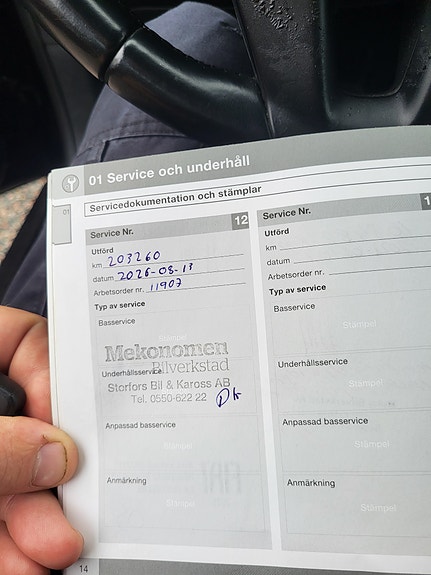 01 Service och underhåll
01
Servicedokumentation och stämplar
Service Nr. 12
Utförd
km 203260
datum 2026-08-13
Arbetsorder nr. 11907
Typ av service
Basservice
Stämpel
Mekonomen
Bilverkstad
Underhållsservice
Storfors Bil & Kaross AB
Tel. 0550-622 22
Anpassad basservice
Stämpel
Anmärkning
Stämpel
14
Service Nr.
Utförd
km
datum
Arbetsorder nr.
Typ av service
Basservice
Stämpel
Underhållsservice
Stämpel
Anpassad basservice
Stämpel
Anmärkning
Stämpel